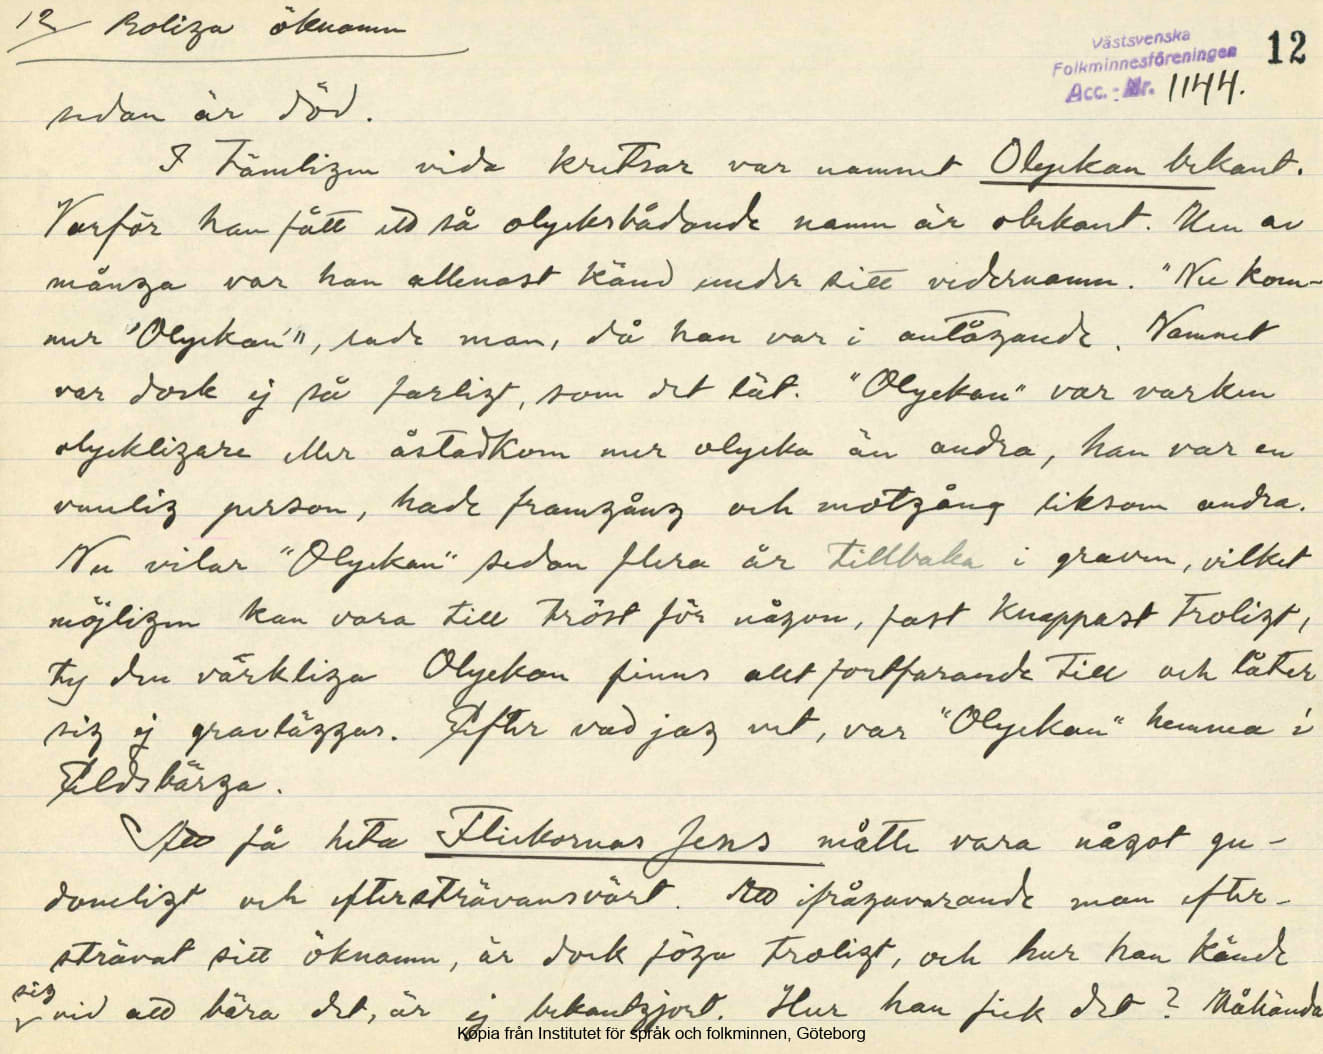 12 Roliga öknamn
Västsvenska
Folkminnesföreningen
Acc. Nr. 1144.
12
sedan är död.
I tämligen vida kretsar var namnet Olyckan bekant.
Varför han fått ett så olycksbådande namn är obekant. Men av
många var han allenast känd under sitt vedernamn. "Nu kom-
mer 'Olyckan'", sade man, då han var i antågande. Namnet
var dock ej så farligt, som det lät. "Olyckan" var varken
olyckligare eller åstadkom mer olycka än andra, han var en
vanlig person, hade framgång och motgång liksom andra.
Nu vilar "Olyckan" sedan flera år tillbaka i graven, vilket
möjligen kan vara till tröst för någon, fast knappast troligt,
ty den värkliga Olyckan finns allt fortfarande till och låter
sig ej gravläggas. Efter vad jag vet, var "Olyckan" hemma i
Eldsbärga.
Att få heta Flickornas Jens måtte vara något gu-
domligt och eftersträvansvärt. Att ifrågavarande man efter-
strävat sitt öknamn, är dock föga troligt, och hur han kände
sig vid att bära det, är ej bekantgjort. Hur han fick det? Måhända
Kopia från Institutet för språk och folkminnen, Göteborg